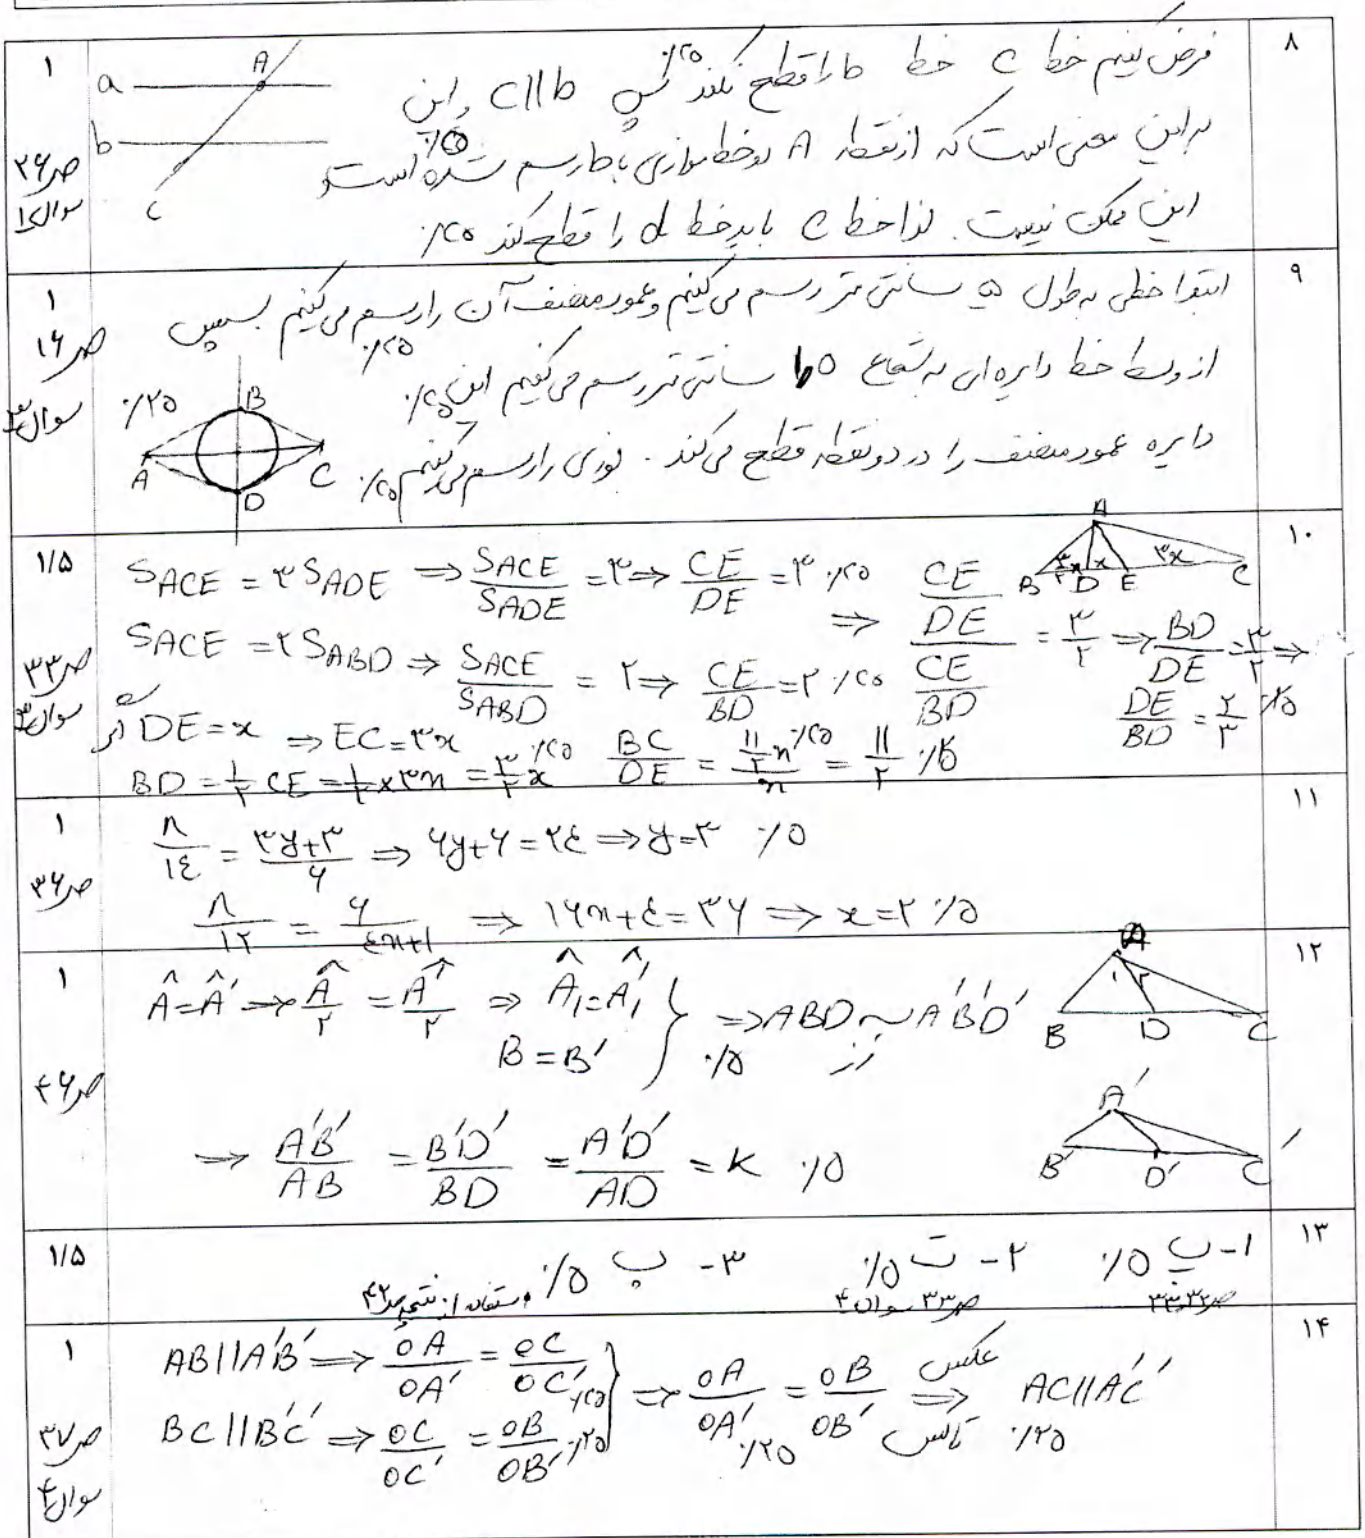 ۸
فرض کنیم خط c خط b را قطع نکند ۰/۲۵ پس c||b و این
به این معنی است که از نقطه A دو خط موازی با b رسم شده است ۰/۵ و
این ممکن نیست. لذا خط c باید خط d را قطع کند ۰/۲۵
a A
b
c
۱
ص ۲۶
سوال ۱
۹
ابتدا خطی به طول ۵ سانتی متر رسم می کنیم و عمود منصف آن را رسم می کنیم ۰/۲۵ سپس
از وسط خط دایره ای به شعاع ۱/۵ سانتی متر رسم می کنیم این ۰/۲۵
دایره عمود منصف را در دو نقطه قطع می کند. لوزی را رسم می کنیم ۰/۲۵
۰/۲۵
B
A C
D
۱
ص ۱۶
سوال ۳
۱۰
A
B ۳/۲x D x E ۳x C
S ACE = ۳ S ADE ⇒ S ACE / S ADE = ۳ ⇒ CE/DE = ۳ ۰/۲۵
S ACE = ۲ S ABD ⇒ S ACE / S ABD = ۲ ⇒ CE/BD = ۲ ۰/۲۵
⇒ (CE/DE)/(CE/BD) = ۳/۲ ⇒ BD/DE = ۳/۲ ⇒
DE/BD = ۲/۳ ۰/۲۵
اگر DE = x ⇒ EC = ۳x
BD = ۱/۲ CE = ۱/۲ × ۳x = ۳/۲ x ۰/۲۵ BC/DE = (۱۱/۲ x)/x ۰/۲۵ = ۱۱/۲ ۰/۲۵
۱/۵
ص ۳۳
سوال ۳
۱۱
۸/۱۴ = (۳y+۳)/۶ ⇒ ۶y+۶=۲۴ ⇒ y=۳ ۰/۵
۸/۱۲ = ۶/(۴x+۱) ⇒ ۱۶x+۴=۳۶ ⇒ x=۲ ۰/۵
۱
ص ۳۶
۱۲
A
۱ ۲
B D C
A'
B' D' C'
Â = Â' ⇒ Â/۲ = Â'/۲ ⇒ Â₁ = Â'₁
B = B'
} ⇒ ABD ~ A'B'D'
۰/۵ زز
⇒ A'B'/AB = B'D'/BD = A'D'/AD = K ۰/۵
۱
ص ۴۶
۱۳
۱- پ ۰/۵ ۲- ت ۰/۵ ۳- پ ۰/۵
ص ۳۲ و ۳۳ ص ۳۳ سوال ۴ استفاده از نتیجه ص ۴۲
۱/۵
۱۴
AB||A'B' ⇒ OA/OA' = OC/OC' ۰/۲۵
BC||B'C' ⇒ OC/OC' = OB/OB' ۰/۲۵
} ⇒ OA/OA' = OB/OB' ۰/۲۵ عکس تالس ⇒ AC||A'C' ۰/۲۵
۱
ص ۳۷
سوال ۴